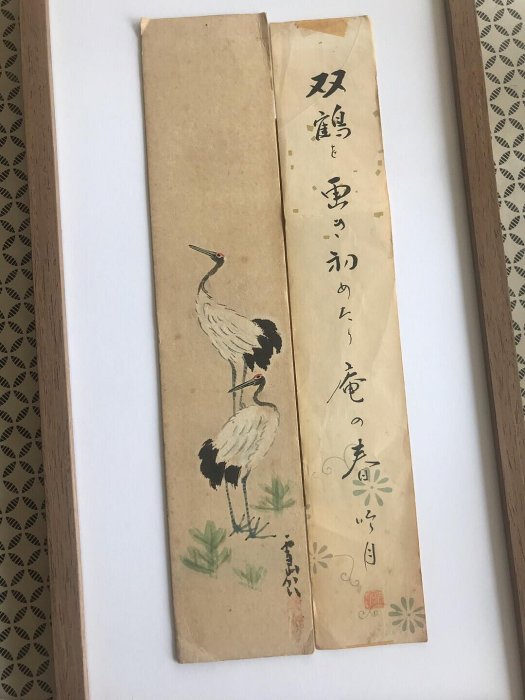 双鶴を画き初めたり庵の春 吟月